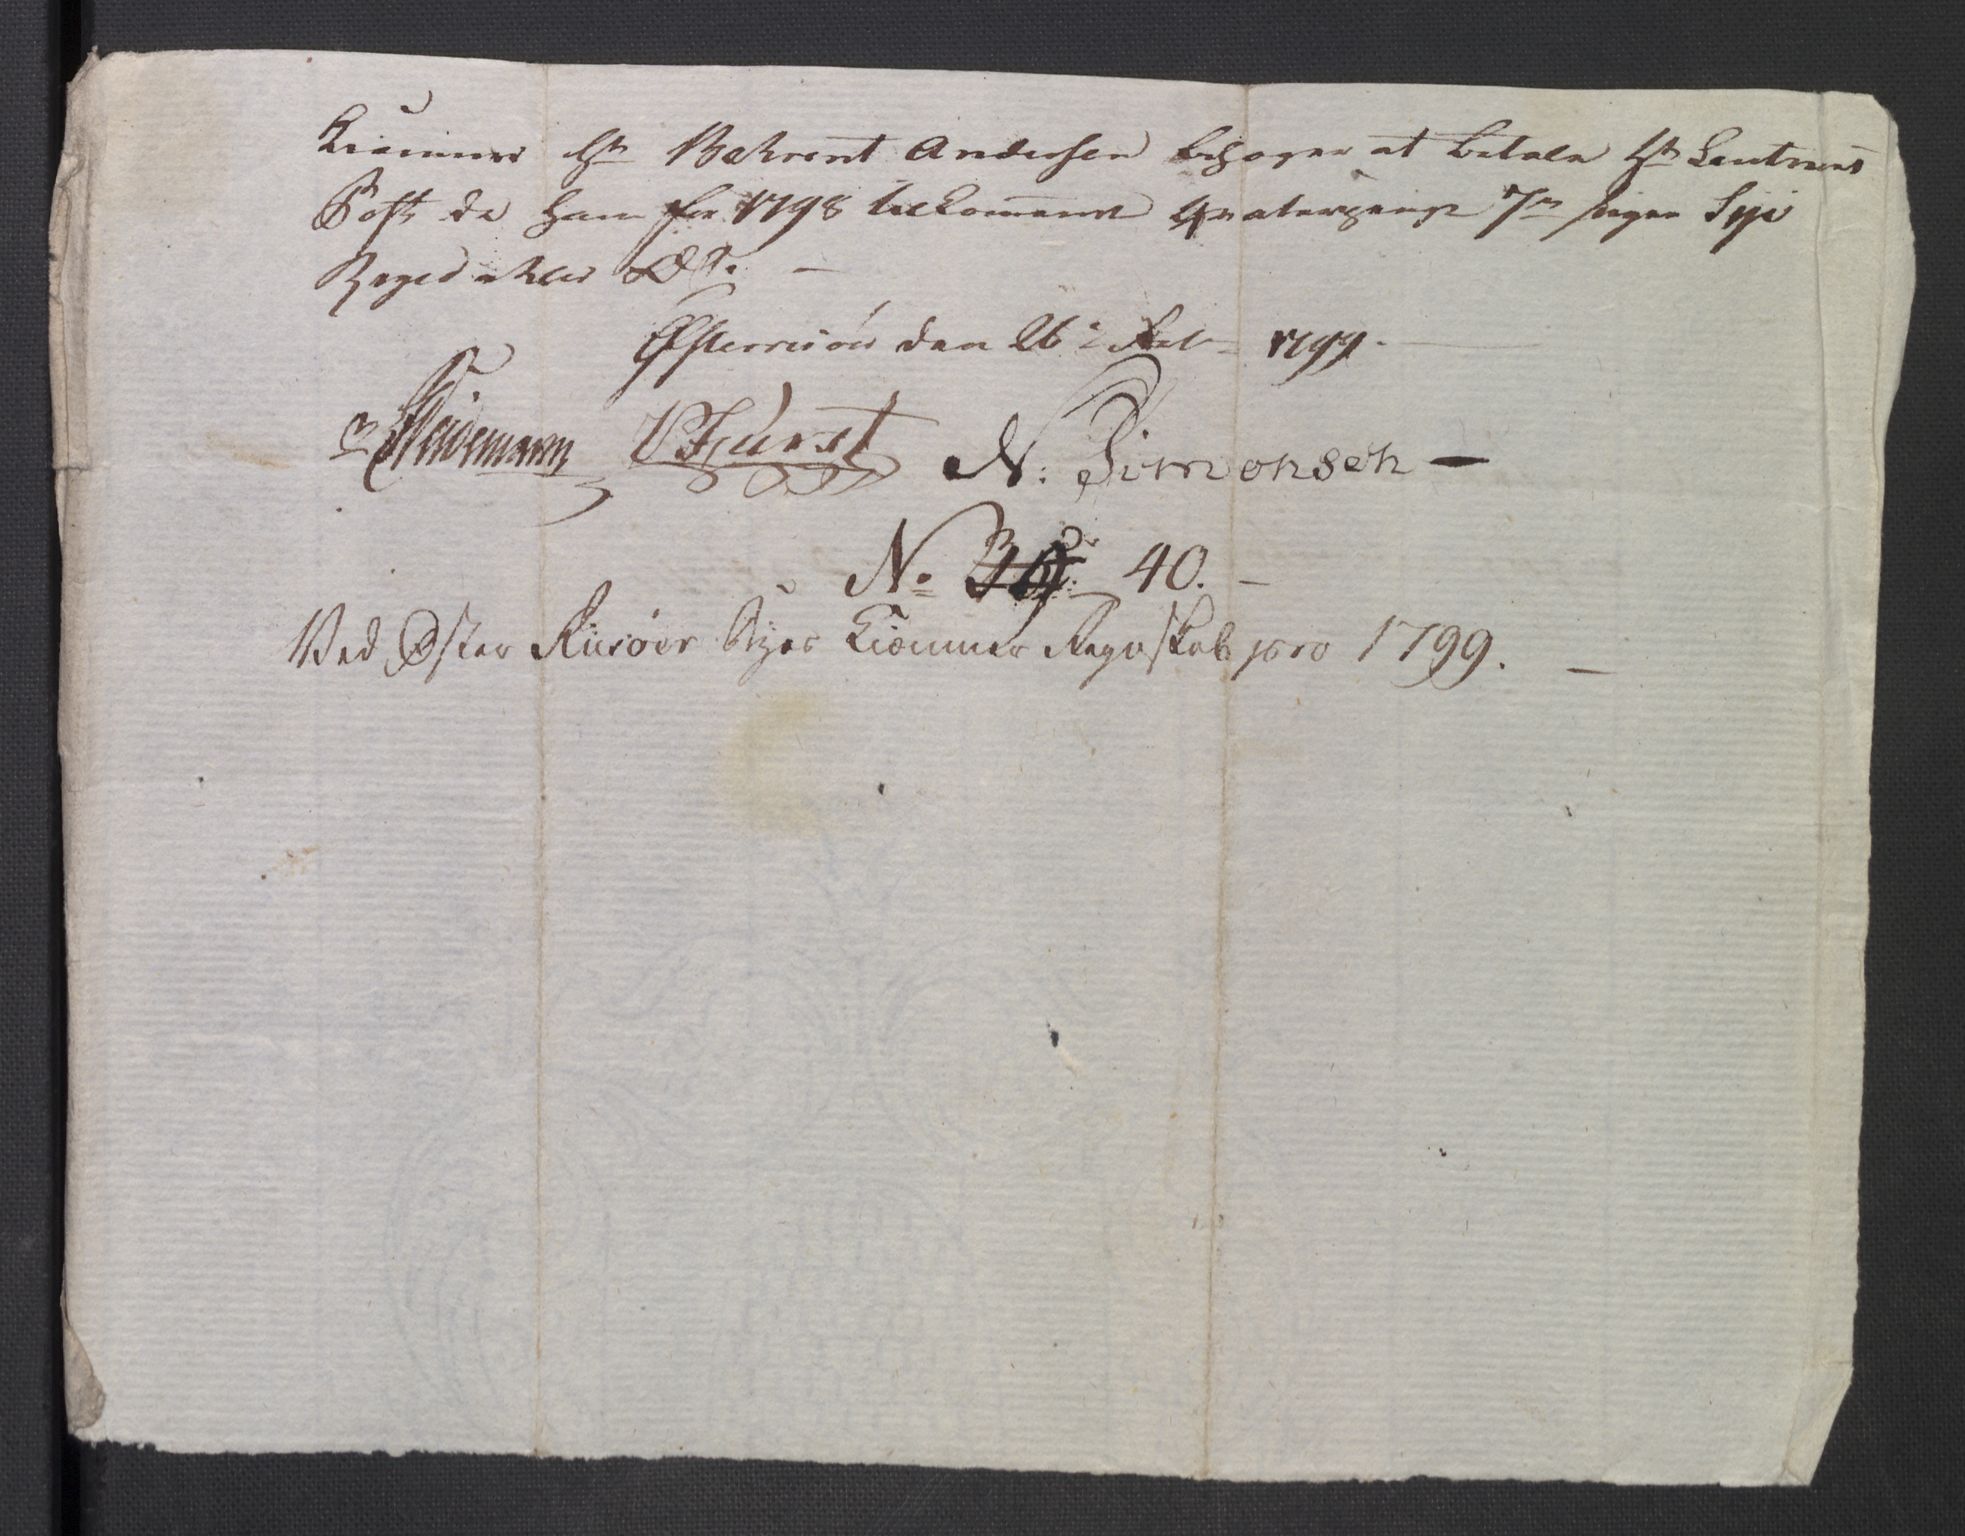 Kiemner Hr Behrent Andersen behager at betale Hr Lautrves
Post de ham for 1798 tilkommende qvatergeng 7 siger Syv
Rigsdahler
Østerrisøer den 26 1799.
Heidemann Fürst N: Simonsen —
No 40. —
Ved Øster Riisøer Byes Kiemner Regnskab pro 1799. —